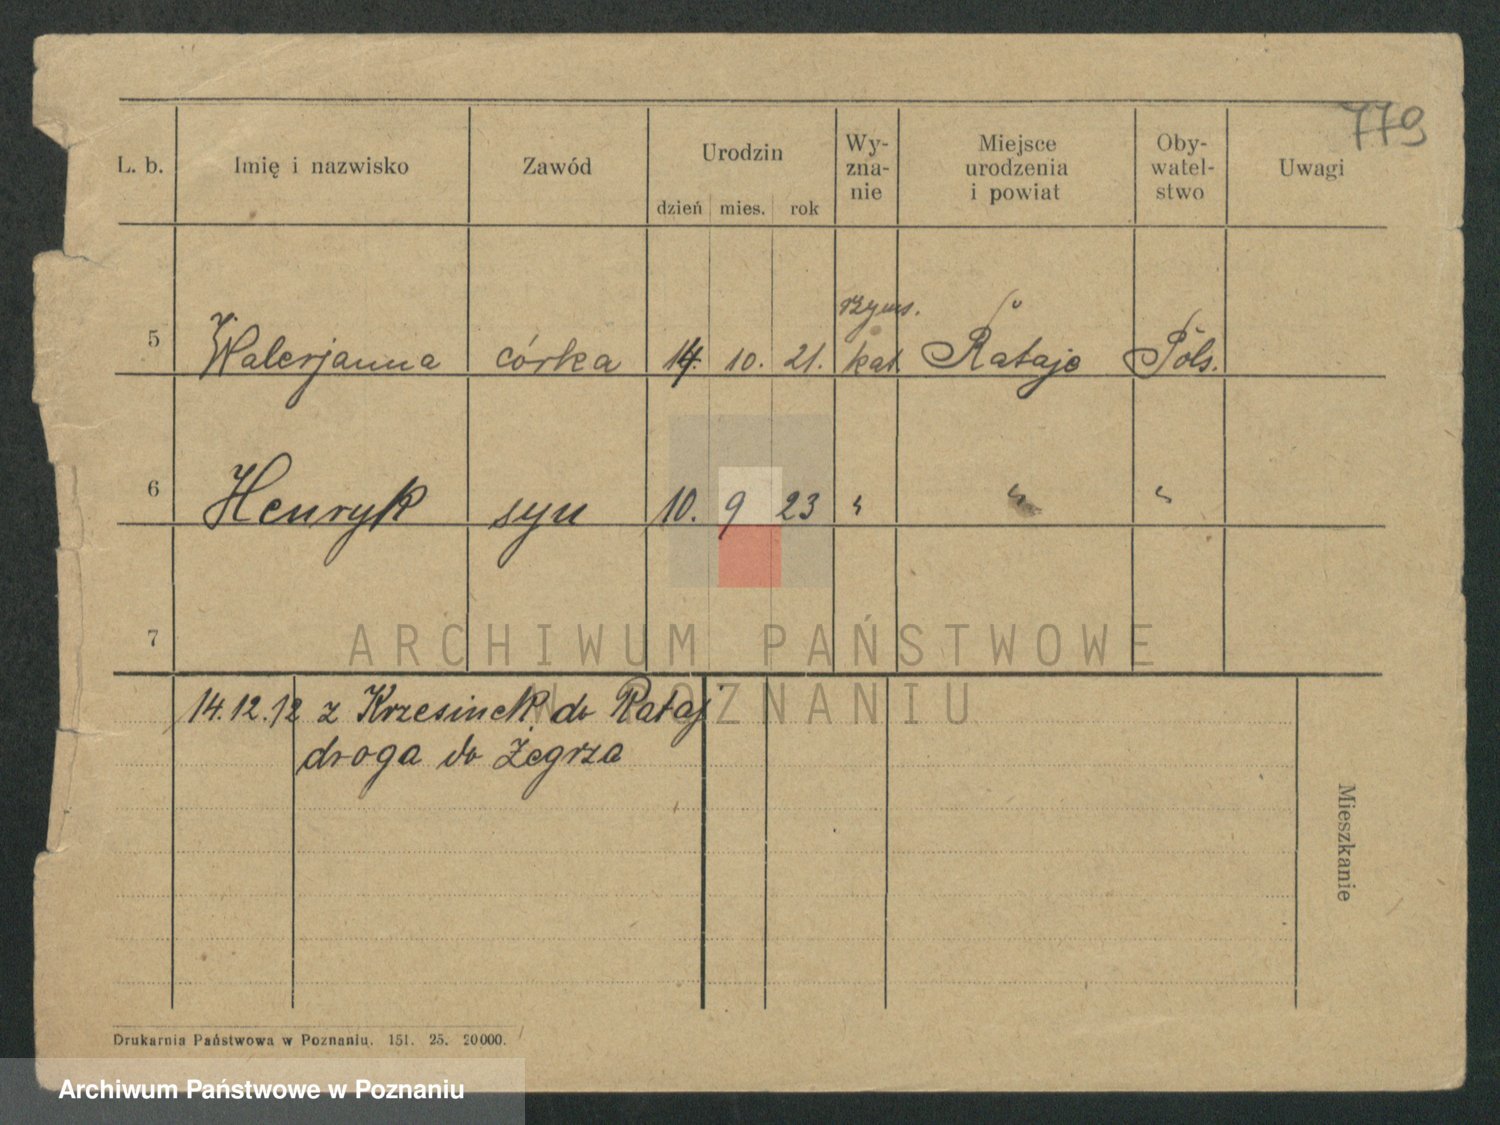 779
L. b. Imię i nazwisko Zawód Urodzin dzień mies. rok Wy-zna-nie Miejsce urodzenia i powiat Oby-watel-stwo Uwagi
rzyms.
5 Walerjanna córka 14. 10. 21. kat. Rataje Pols.
6 Henryk syn 10. 9 23 " " "
7
14.12.12 z Krzesinek do Rataj
droga do Żegrza
Mieszkanie
Drukarnia Państwowa w Poznaniu. 151. 25. 20000.
ARCHIWUM PAŃSTWOWE
W POZNANIU
Archiwum Państwowe w Poznaniu